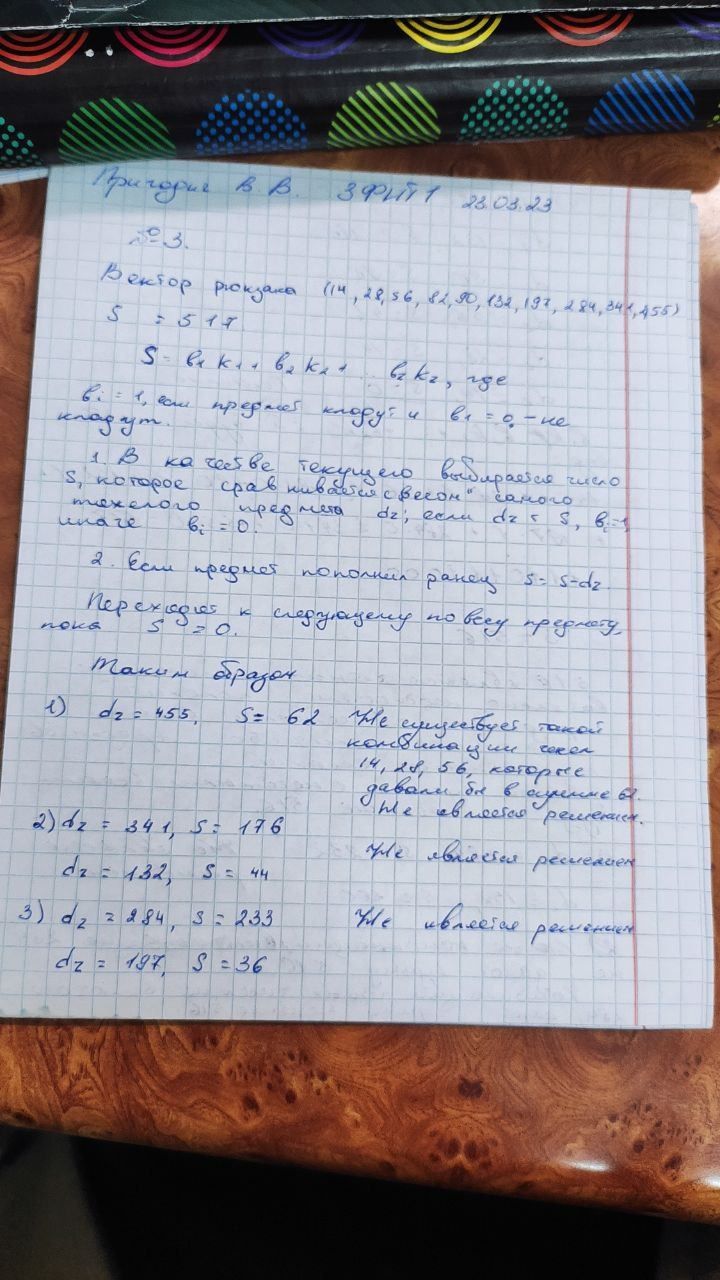 Пригодич В. В. 3ФИТ1 23.03.23
№3.
Вектор рюкзака (14, 28, 56, 82, 90, 132, 197, 284, 341, 455)
S = 517
S = в1 к1 + в2 к2 + ... вz кz, где
вi = 1, если предмет кладут и в1 = 0, - не
кладут.
1. В качестве текущего выбирается число
S, которое сравнивается с "весом" самого
тяжелого предмета dz; если dz < S, вi=1,
иначе вi = 0.
2. Если предмет пополнил ранец S = S-dz.
Переходят к следующему по весу предмету,
пока S = 0.
Таким образом
1) dz = 455, S = 62 Не существует такой
комбинации чисел
14, 28, 56, которые
давали бы в сумме 62.
Не является решением.
2) dz = 341, S = 176
Не является решением
dz = 132, S = 44
3) dz = 284, S = 233 Не является решением
dz = 197, S = 36